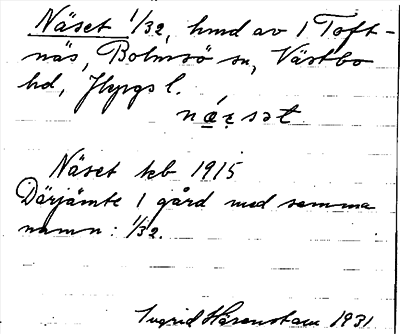 Näset 1/32, hmd av 1 Toft-
näs, Bolmsö sn, Västbo
hd, Jkpgs l.
næ̀ʐsət
Näset kb 1915
Därjämte 1 gård med samma
namn: 1/32.
Ingrid Hårenstam 1931